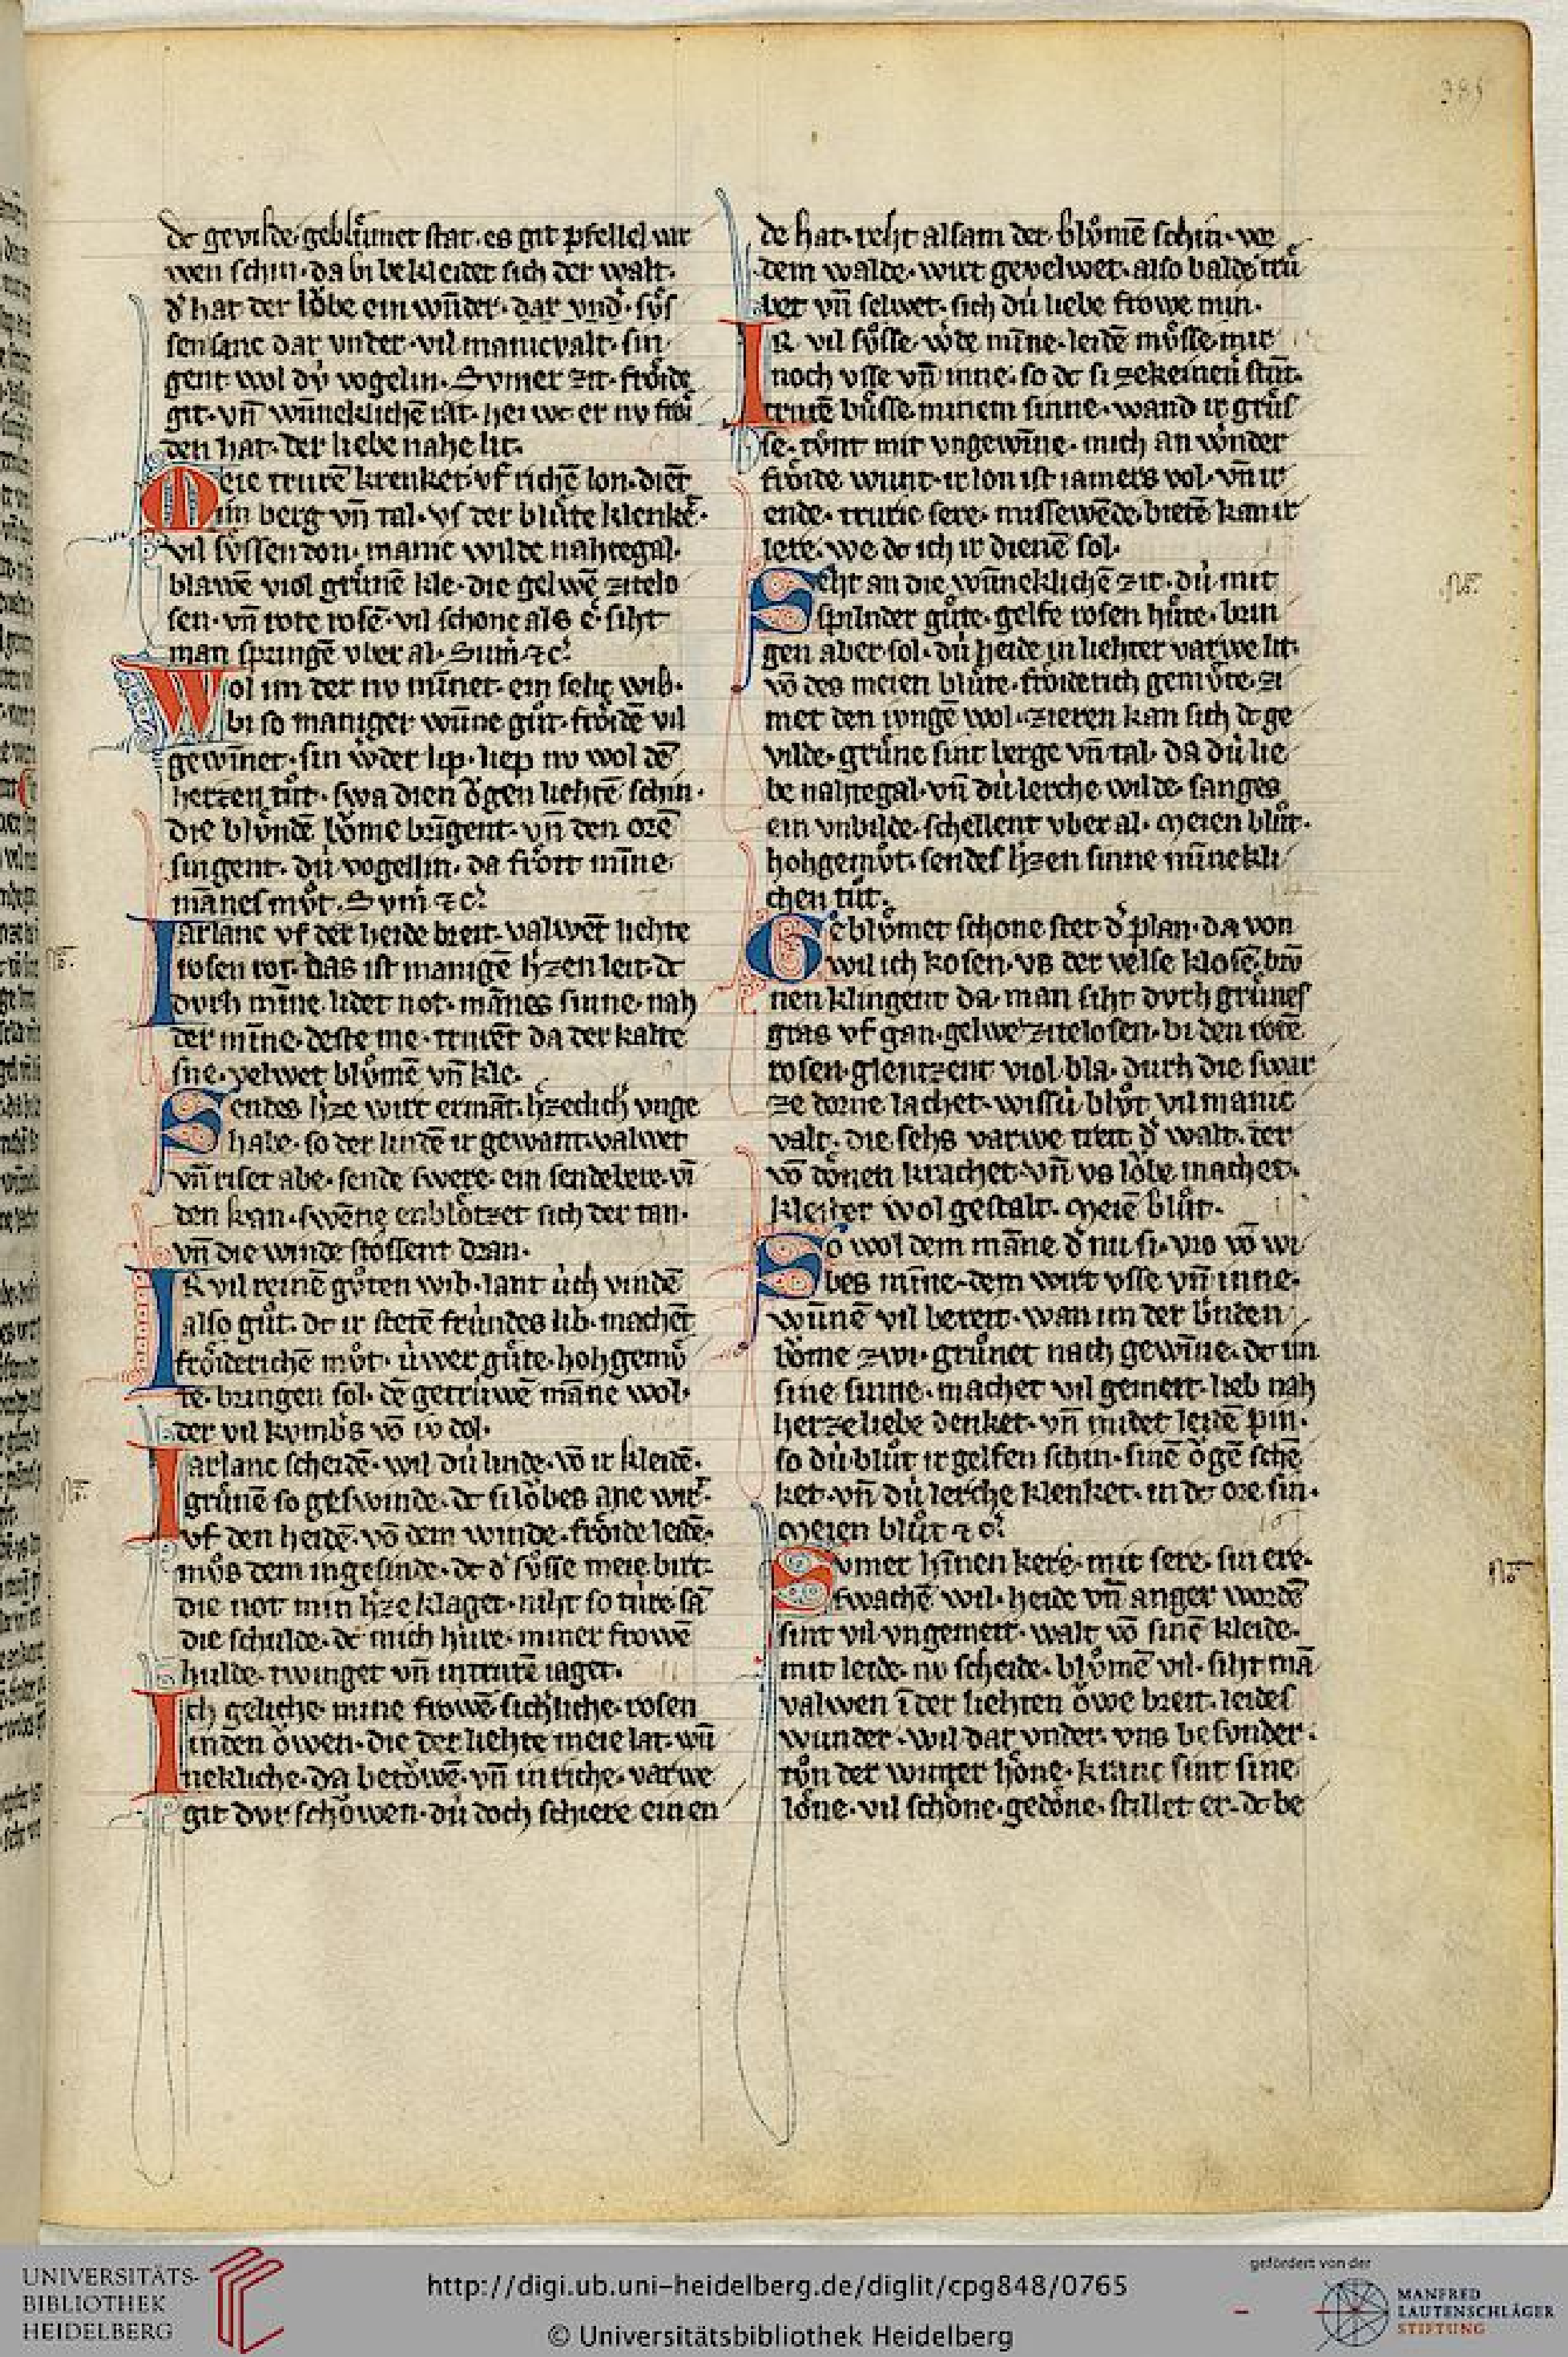 385
dc gevilde geblu̍met stat. es git pfellel var
wen schin. da bi bekleidet sich der walt.
d' hat der loͮbe ein wund̄er. dar vnd'. suͤs
sen sanc dar vnder. vil manicvalt. sin
gent wol dv̍ vogelin. Svmer zit. froͤide
git. vn̄ wu̍nneklichē rat. hei wc er nv froͤi
den hat. der liebe nahe lit.
Meie trurē krenket. vf richē lon. dienēt
im berg vn̄ tal. vs der blu̍te klenkēt.
vil sv̍ssen don. manic wilde nahtegal.
blawē viol gru̍nē kle. die gelwē zitelo
sen. vn̄ rote rosē. vil schone als e. siht
man springē vber al. Sum̄ ⁊c̄
Wol im der nv minnet. ein selic wib.
bi so maniger wūne guͦt. froͤidē vil
gewīnet. sin w'der lip. liep nv wol dē
herzen tuͦt. swa dien oͮgen liehtē schin.
die blv̍nden boͤme brīgent. vn̄ den orē
singent. du̍ vogellin. da froͤit mīne
mānes mvͦt. Svm̄ ⁊c̄
Iarlanc vf der heide breit. valwēt liehte
rosen rot. das ist manigē h'zen leit. dc
dvrh mīne lidet not. mānes sinne. nah
der mīne. deste me. trurēt da der kalte
sne. velwet bluͦmē vn̄ kle.
Sendes h'ze wirt ermāt. h'zeclich' vnge
habe. so der lindē ir gewant. valwet
vn̄ riset abe. sende swere. ein sendebere. vī
den kan. swēne enbloͤtzet sich der tan.
vn̄ die winde stossent dran.
IR vil reinē guͦten wib. lant u̍ch vindē
also guͦt. dc ir stetē fru̍ndes lib. machēt
froͤiderichē mvͦt. u̍wer guͤte. hohgemuͤ
te. bringen sol. dē getru̍wē māne wol.
der vil kvmb's vō iv dol.
Iarlanc scheidē. wil du̍ linde. vō ir kleidē.
gruͤnē so geswinde. dc si loͮbes ane wirt.
vf den heidē. vō dem winde. froͤide leidē.
mvͦs dem ingesinde. dc d' suͤsse meie birt.
die not min h'ze klaget. niht so tu̍re sā
die schulde. dc mich hu̍re. miner frowē
hulde. twinget vn̄ in trurē iaget.
Ich geliche. mine frowē. sich'liche. rosen
in den oͮwen. die der liehte meie lat. wū
nekliche. da betoͮwē. vn̄ in riche. varwe
git dvr schoͮwen. du̍ doch schiere einen
de hat. reht alsam der. bluͦmē schin. vor
dem walde. wirt gevelwet. also balde tru̍
bet vn̄ selwet. sich du̍ liebe frowe min.
IR vil suͤsse. w'de mīne. leidē muͤsse. mit
noch vsse vn̄ inne. so dc si ze keinen stūt.
trurē buͤsse. minem sinne. wand ir gruͤs
se. toͮnt mit vngewīne. mich an wunder
froͤide wunt. ir lon ist iamers vol. vn̄ ir
ende. truric sere. missewēde. bietē kan ir
lere. we dc ich ir dienē sol.
Seht an die wūneklichē zit. du̍ mit
spilnder guͤte. gelfe rosen huͤte. brin
gen aber sol. du̍ heide in liehter varwe lit.
vō des meien bluͤte. froͤiderich gemvͤte. zi
met den ivngē wol. zieren kan sich dc ge
vilde. gruͤne sint berge vn̄ tal. da du̍ lie
be nahtegal. vn̄ du̍ lerche wilde. sanges
ein vnbilde. schellent vber al. Meien bluͦt.
hohgemvͦt. sendes h'zen sinne minnekli
chen tuͦt.
Gebluͤmet schone stet d' plan. da von
wil ich kosen. vs der velse klosē. brū
nen klingent da. man siht dvrh gruͤnes
gras vf gan. gelwe zitelosen. bi den rotē
rosen. glentzent viol bla. durh die swar
ze dorne lachet. wissu̍ bluͦt vil manic
valt. die sehs varwe treit d' walt. der
vō doͤnen krachet. vn̄ vs loͮbe machet.
kleider wol gestalt. Meiē bluͦt.
So wol dem māne d' nu si. vro vō wi
bes mīne. dem wirt vsse vn̄ inne.
wūnē vil bereit. wan im der linden
boͤme zwi. gruͤnet nach gewīne. dc im
sine sinne. machet vil gemeit. lieb nah
herzeliebe denket. vn̄ midet leidē pin.
so du̍ bluͦt ir gelfen schin. sinē oͮgē schē
ket. vn̄ du̍ lerche klenket. in dc ore sin.
Meien bluͦt ⁊c̄
Svmer hīnen kere. mit sere. sin ere.
swachē wil. heide vn̄ anger wordē
sint vil vngemeit. walt vō sinē kleide.
mit leide. nv scheide. bluͦmē vil. siht mā
valwen ī der liehten oͮwe breit. leides
wunder. wil dar vnder. vns besonder.
toͮn der winter hoͤne. kranc sint sine
loͤne. vil schoͤne. gedoͤne. stillet er. dc be
UNIVERSITÄTS-
BIBLIOTHEK
HEIDELBERG
http://digi.ub.uni-heidelberg.de/diglit/cpg848/0765
© Universitätsbibliothek Heidelberg
gefördert von der
MANFRED
LAUTENSCHLÄGER
STIFTUNG